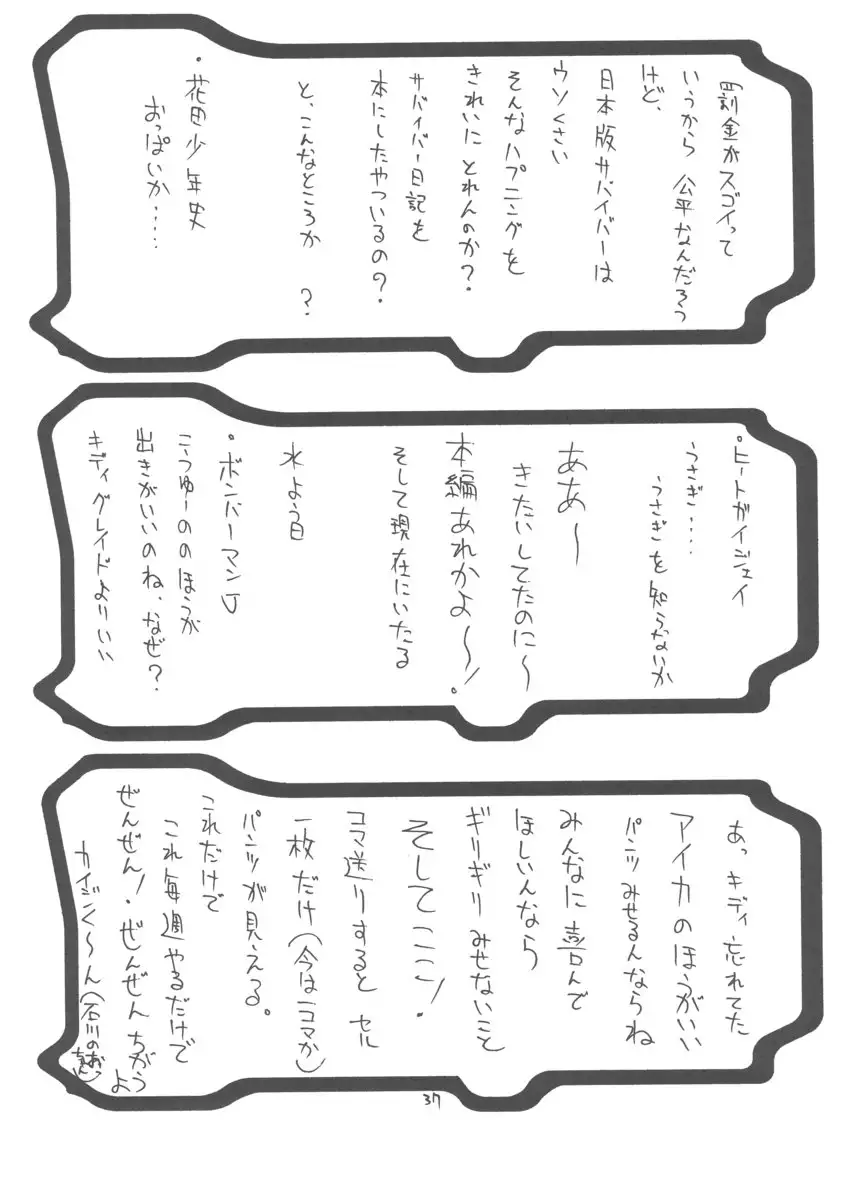 罰金がスゴイって
いうから 公平なんだろう
けど、
日本版サバイバーは
ウソくさい
そんなハプニングを
きれいに とれんのか?
サバイバー日記を
本にしたやついるの?
と、こんなところか ?
・花田少年史
おっぱいか……
・ヒートガイジェイ
うさぎ…
うさぎを知らないか
ああ〜
きたいしてたのに〜
本編あれかよ〜!。
そして現在にいたる
水よう日
・ボンバーマンJ
こうゆーののほうが
出きがいいのね、なぜ?
キディグレイドよりいい
あっ キディ忘れてた
アイカのほうがいい
パンツみせるんならね
みんなに喜んで
ほしいんなら
ギリギリみせないこと
そしてここ!
コマ送りすると セル
一枚だけ(今は一コマか)
パンツが見える。
これだけで
これ毎週やるだけで
ぜんぜん!・ぜんぜん ちがう
よ
カイジンく〜ん(石川のおっちゃん)
37